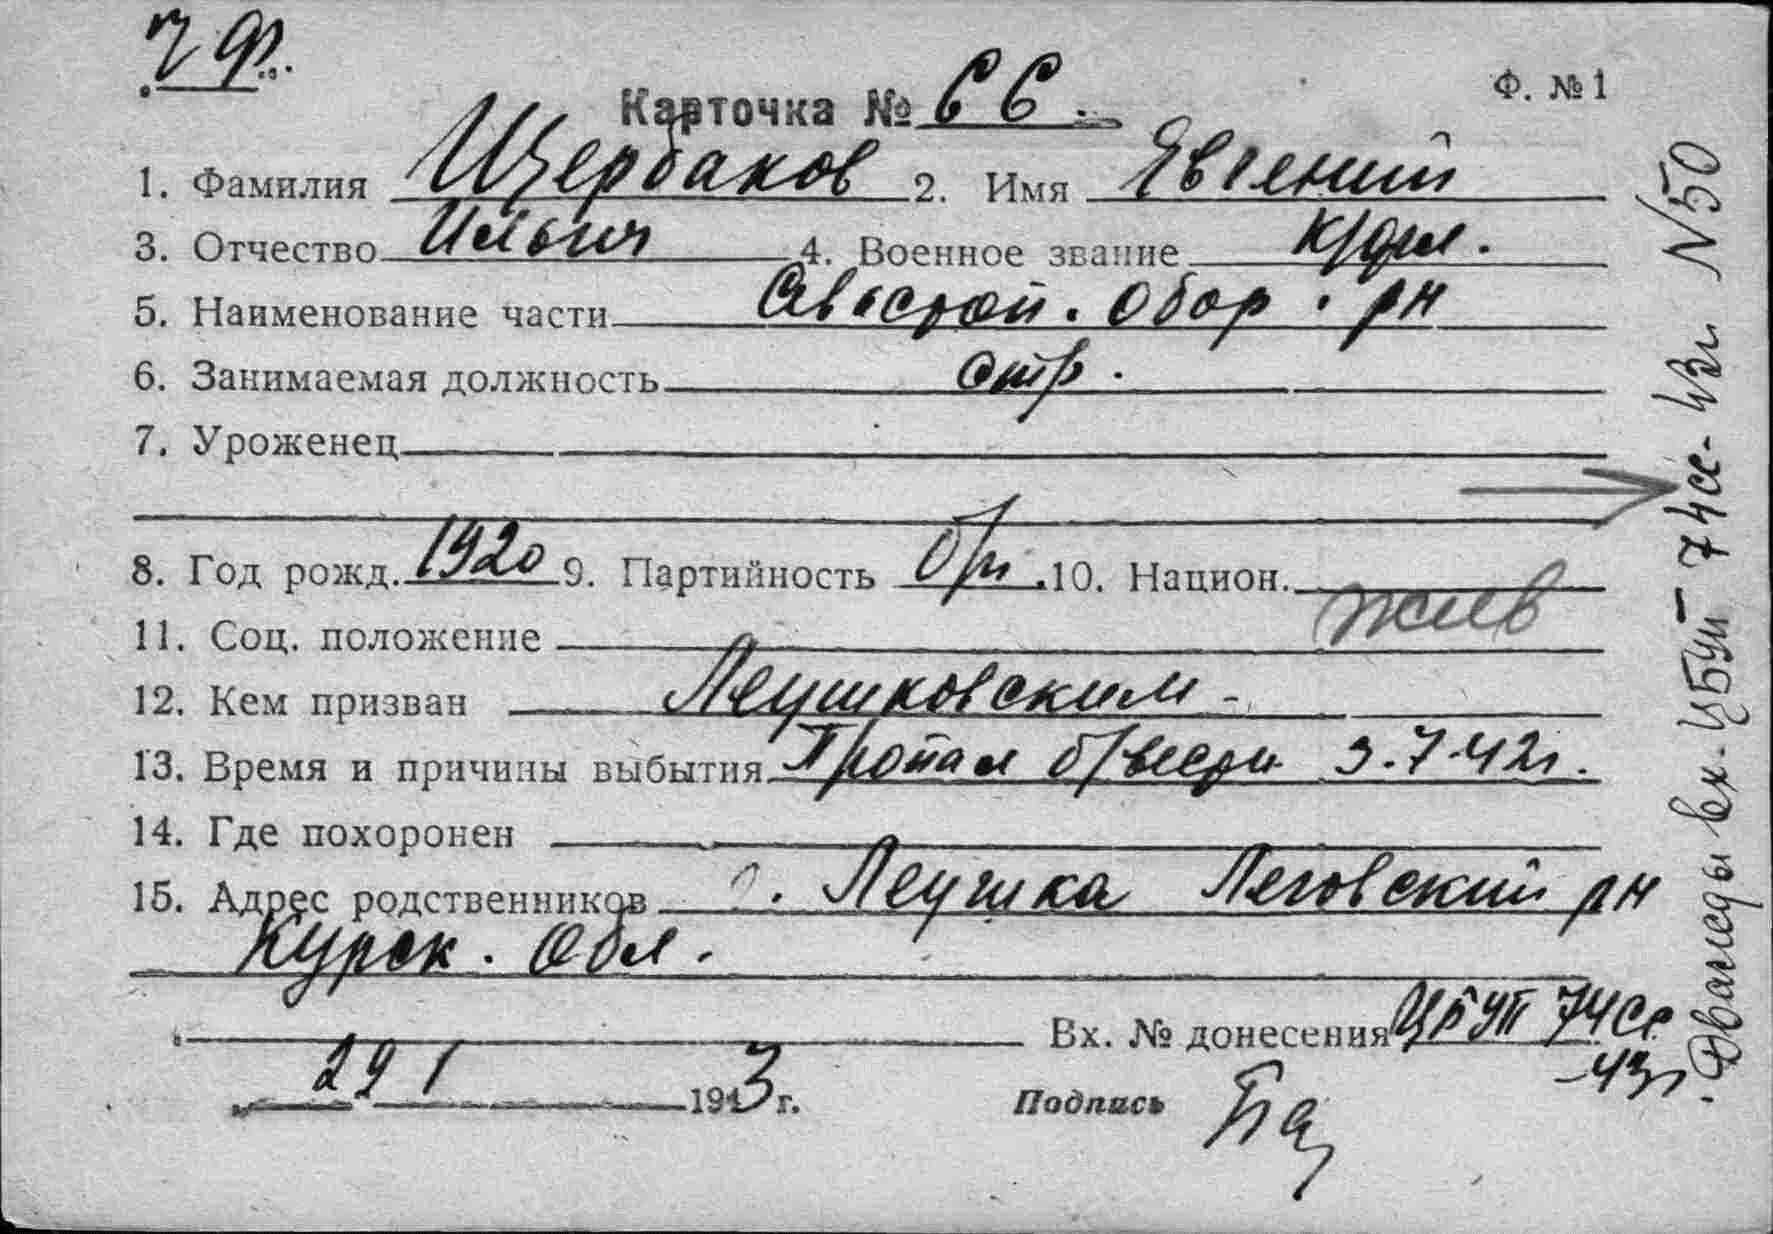 ЧФ.
Ф. № 1
Карточка № 66.
1. Фамилия Щербаков 2. Имя Евгений
3. Отчество Ильич 4. Военное звание к/фл.
5. Наименование части Севастоп. Обор. рн
6. Занимаемая должность стр.
7. Уроженец
8. Год рожд. 1920 9. Партийность б/п. 10. Национ.
жив
11. Соц. положение
12. Кем призван Леушковским -
13. Время и причины выбытия Пропал б/вести 3.7.42г.
14. Где похоронен
15. Адрес родственников . Леушка Леговский рн
Курск. Обл.
Вх. № донесения ЦБУП 74сс
-43г
29 1 1943 г. Подпись
Дважды вх. ЦБУП 74сс-43г N50